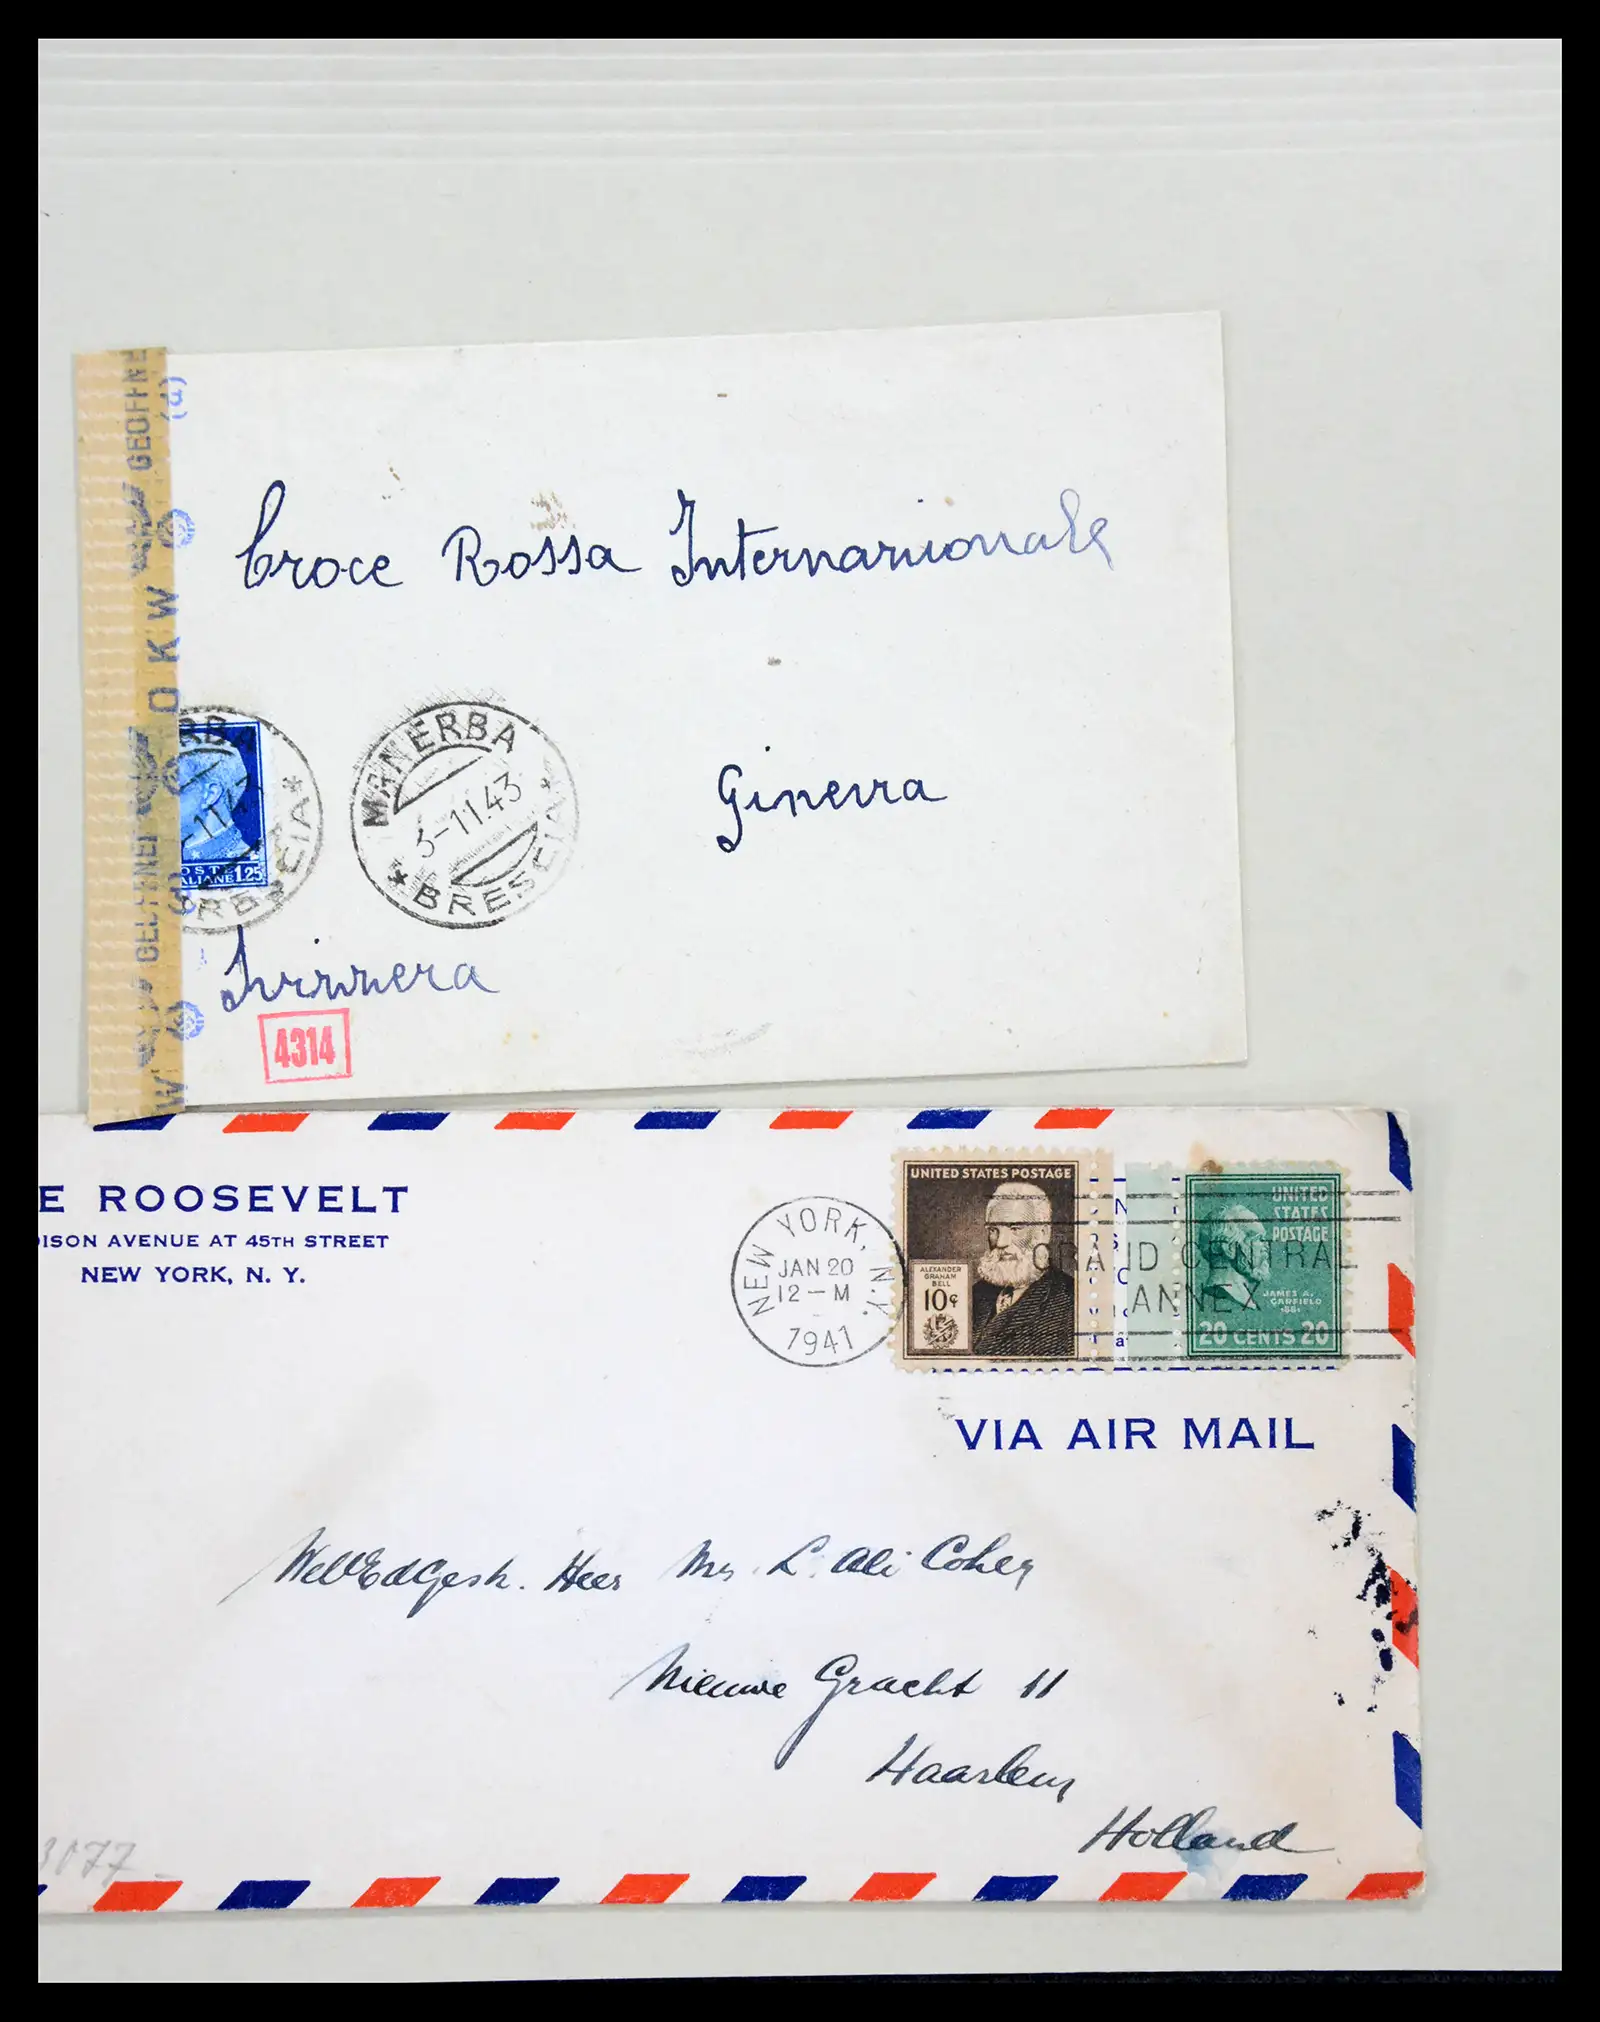 GEOFFNE
OKW
GEOFFNET
W
Croce Rossa Internazionale
RBA
BRESCIA
POSTE
ITALIANE 1.25
MANERBA
3-11.43
* BRESCIA *
Ginevra
Svizzera
4314
E ROOSEVELT
ISON AVENUE AT 45TH STREET
NEW YORK, N. Y.
NEW YORK, N.Y.
JAN 20
12 — M
1941
GRAND CENTRAL
ANNEX
UNITED STATES POSTAGE
ALEXANDER
GRAHAM
BELL
10¢
UNITED
STATES
POSTAGE
JAMES A.
GARFIELD
1881
20 CENTS 20
VIA AIR MAIL
WelEdGestr. Heer Mr. L. Ali Cohen
Nieuwe Gracht 11
Haarlem
Holland
3077